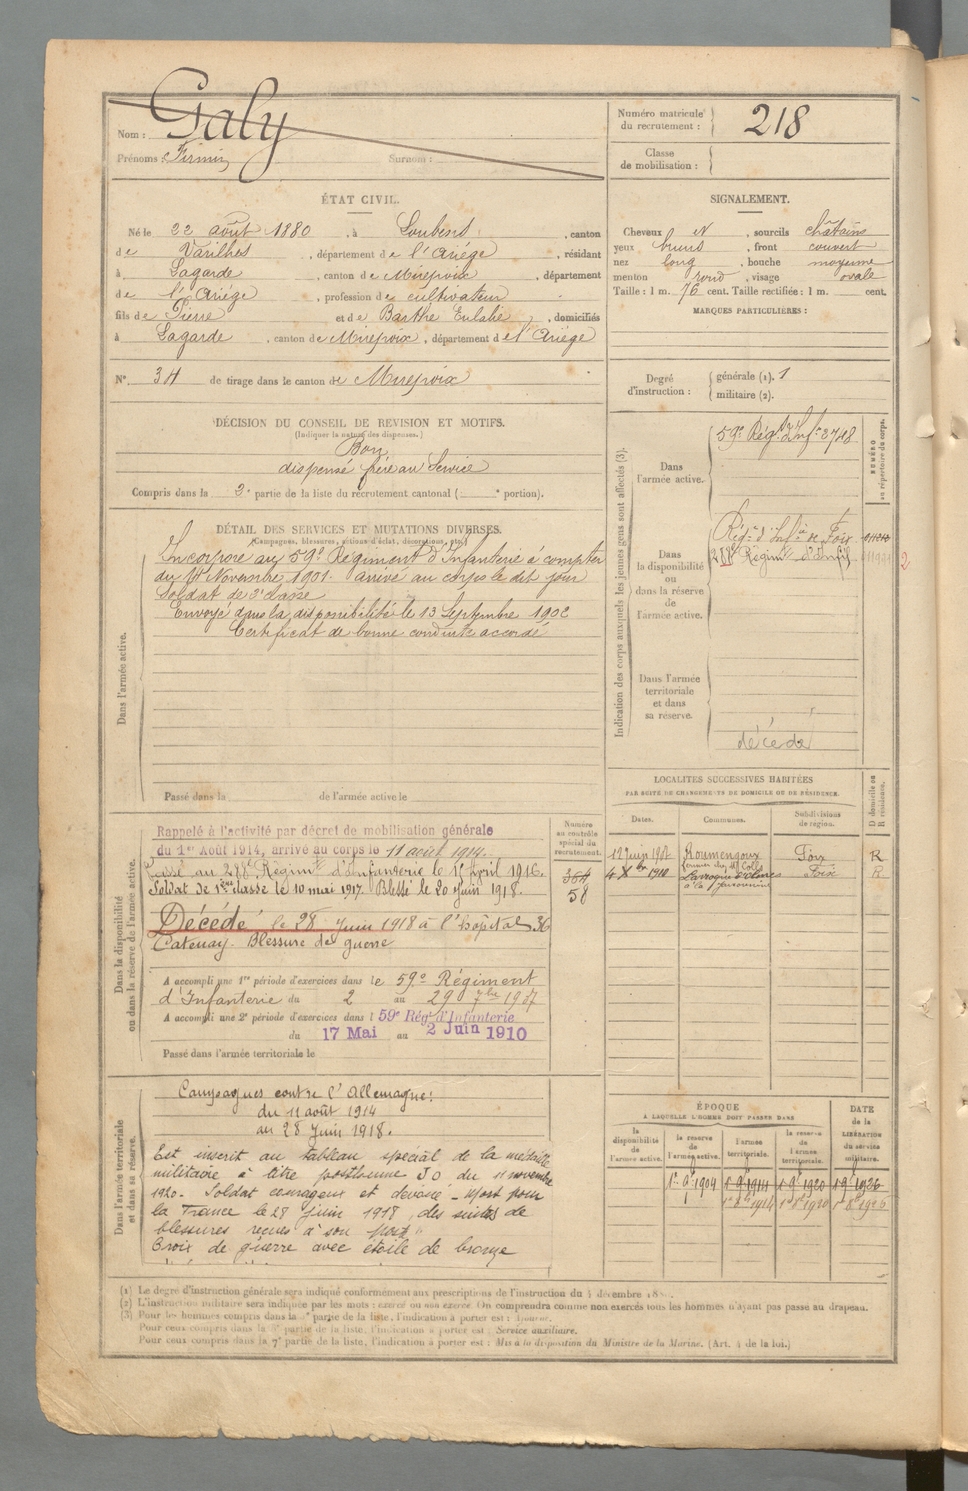 Nom : Galy
Prénoms : Firmin Surnom :
Numéro matricule du recrutement : 218
Classe de mobilisation :
ÉTAT CIVIL.
Né le 22 août 1880, à Loubens, canton
de Varilhes, département de l'Ariège, résidant
à Lagarde, canton de Mirepoix, département
de l'Ariège, profession de cultivateur
fils de Pierre et de Barthe Eulalie, domiciliés
à Lagarde, canton de Mirepoix, département de l'Ariège
N° 34 de tirage dans le canton de Mirepoix
SIGNALEMENT.
Cheveux N, sourcils châtains
yeux bruns, front couvert
nez long, bouche moyenne
menton rond, visage ovale
Taille : 1 m. 76 cent. Taille rectifiée : 1 m. cent.
MARQUES PARTICULIÈRES :
Degré d'instruction : générale (1). 1
militaire (2).
DÉCISION DU CONSEIL DE REVISION ET MOTIFS.
(Indiquer la nature des dispenses.)
Bon
dispensé frère au Service
Compris dans la 2e partie de la liste du recrutement cantonal ( e portion).
DÉTAIL DES SERVICES ET MUTATIONS DIVERSES.
(Campagnes, blessures, actions d'éclat, décorations, etc.)
Dans l'armée active.
Incorporé au 59e Régiment d'Infanterie à compter
du 14 Novembre 1901. arrivé au corps le dit jour
Soldat de 2e classe
Envoyé dans la disponibilité le 13 Septembre 1902
Certificat de bonne conduite accordé
Passé dans la de l'armée active le
Indication des corps auxquels les jeunes gens sont affectés (3).
NUMÉRO au répertoire du corps.
Dans l'armée active.
59e Rég. d'Inf. 3748
Dans la disponibilité ou dans la réserve de l'armée active.
Rég. d'Inf. de Foix
288e Régimt d'Infie
2
Dans l'armée territoriale et dans sa réserve.
décédé
LOCALITÉS SUCCESSIVES HABITÉES
PAR SUITE DE CHANGEMENTS DE DOMICILE OU DE RÉSIDENCE.
D domicile ou R résidence.
Dates. Communes. Subdivisions de région.
12 Juin 1902 Roumengoux Foix R
4 Xbre 1910 Laroque d'Olmes Foix R
Dans la disponibilité ou dans la réserve de l'armée active.
Numéro au contrôle spécial du recrutement.
364
58
Rappelé à l'activité par décret de mobilisation générale
du 1er Août 1914, arrivé au corps le 11 août 1914.
Passé au 288e Régiment d'Infanterie le 1er Avril 1916.
Soldat de 1ère classe le 10 mai 1917. Blessé le 20 Juin 1918.
Décédé le 28 Juin 1918 à l'hôpital 36
Catenay. Blessure de guerre
A accompli une 1re période d'exercices dans le 59e Régiment
d'Infanterie du 2 au 29 7bre 1907
A accompli une 2e période d'exercices dans l 59e Rég. d'Infanterie
du 17 Mai au 2 Juin 1910
Passé dans l'armée territoriale le
Dans l'armée territoriale et dans sa réserve.
Campagnes contre l'Allemagne :
du 11 août 1914
au 28 Juin 1918.
Est inscrit au tableau spécial de la médaille
militaire à titre posthume J.O du 11 novembre
1920. Soldat courageux et dévoué - Mort pour
la France le 28 juin 1918, des suites de
blessures reçues à son poste
Croix de guerre avec étoile de bronze
ÉPOQUE
À LAQUELLE L'HOMME DOIT PASSER DANS
DATE de la LIBÉRATION DU SERVICE militaire.
la disponibilité de l'armée active. la réserve de l'armée active. l'armée territoriale. la réserve de l'armée territoriale.
1er 9bre 1904 1er 9bre 1914 1er 9bre 1920 1er 9bre 1926
1er 8bre 1914 1er 8bre 1920 1er 8bre 1926
(1) Le degré d'instruction générale sera indiqué conformément aux prescriptions de l'instruction du 4 décembre 1889.
(2) L'instruction militaire sera indiquée par les mots : exercé ou non exercé. On comprendra comme non exercés tous les hommes n'ayant pas passé au drapeau.
(3) Pour les hommes compris dans la partie de la liste, l'indication à porter est :
Pour ceux compris dans la 5e partie de la liste, l'indication à porter est : Service auxiliaire.
Pour ceux compris dans la 7e partie de la liste, l'indication à porter est : Mis à la disposition du Ministre de la Marine. (Art. 4 de la loi.)